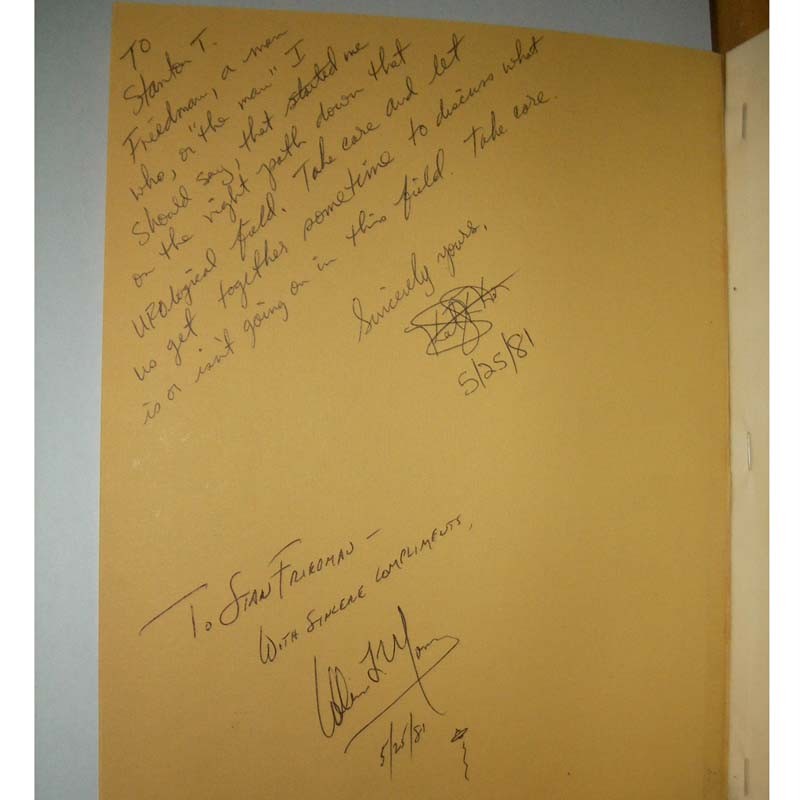 TO
Stanton T.
Friedman, a man
who, or "the man" I
should say, that started me
on the right path down that
UFOlogical field. Take care and let
us get together sometime to discuss what
is or isn't going on in this field. Take care.
Sincerely yours,
5/25/81
To Stan Friedman –
With sincere compliments,
5/25/81